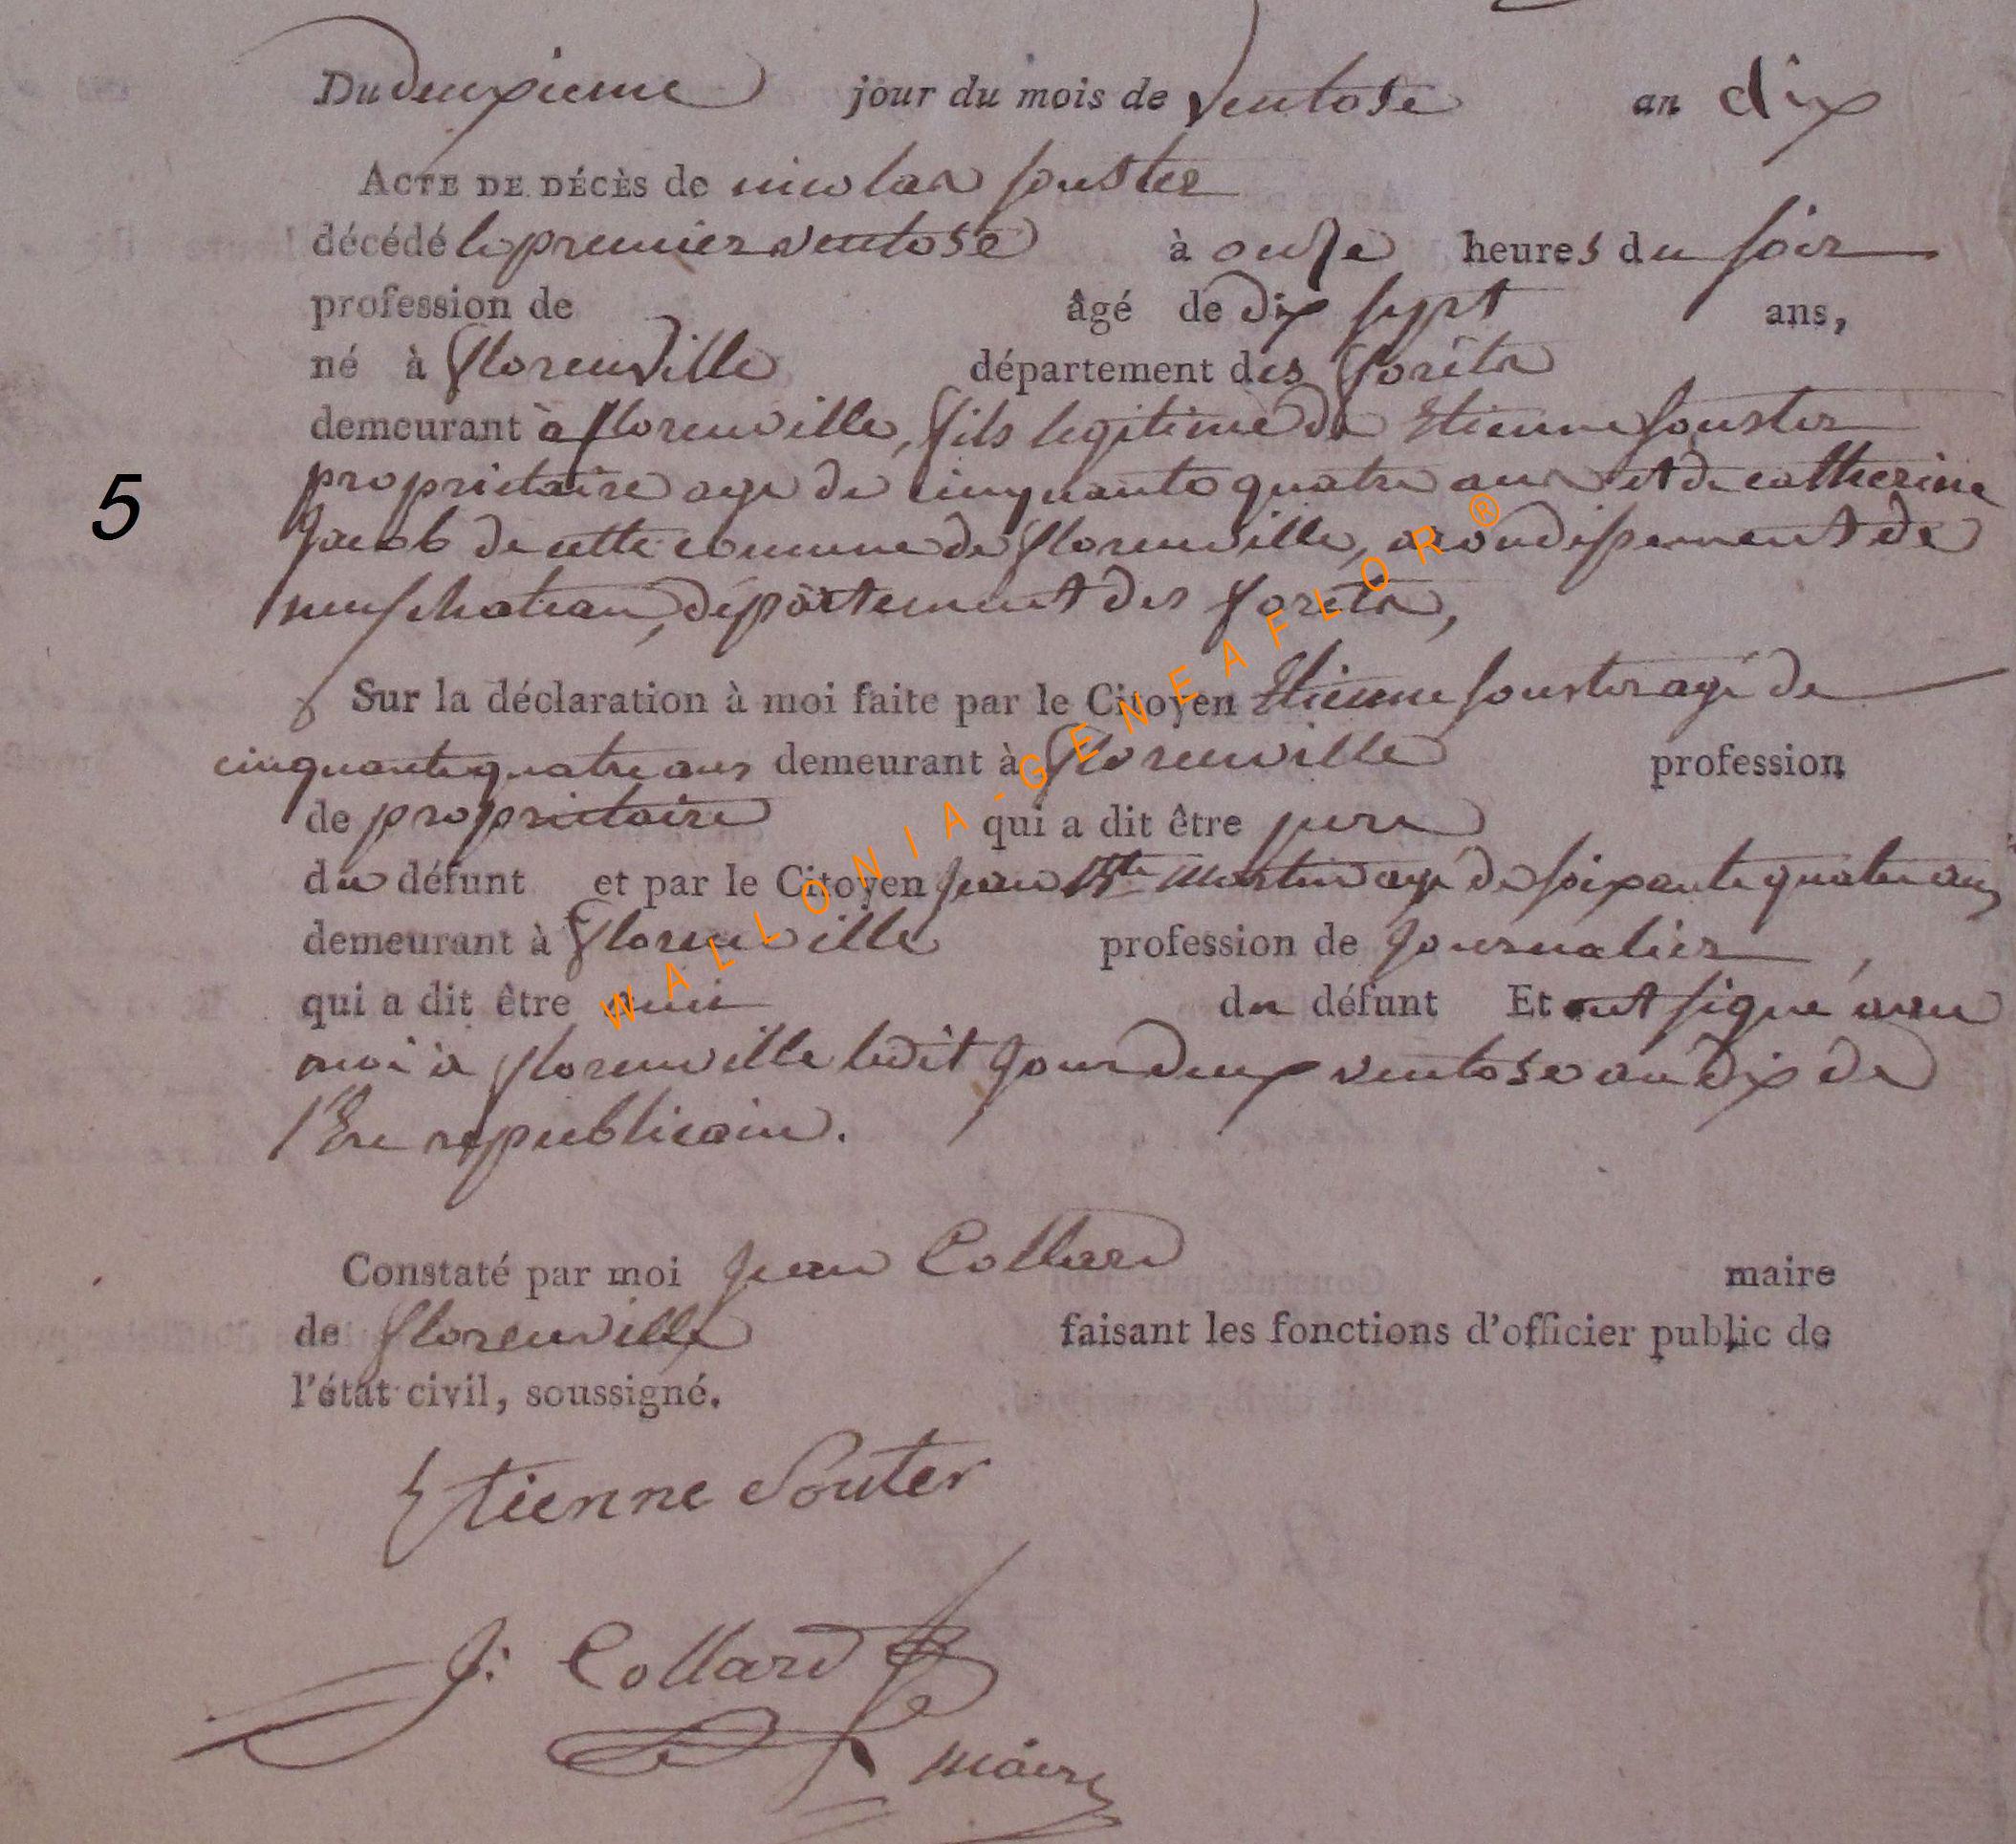 Du deuxieme jour du mois de Ventose an dix
ACTE DE DÉCÈS de nicolas souster
décédé le premier ventose à onse heures du soir
profession de âgé de dix sept ans,
né à florenville département des forêts
demeurant à florenville, fils legitime de Etienne souster
propriétaire agé de cinquante quatre ans et de catherine
Jacob de cette commune de florenville, arondissement de
neufchateau, département des forets,
Sur la déclaration à moi faite par le Citoyen Etienne souster agé de
cinquante quatre ans demeurant à florenville profession
de propriétaire qui a dit être pere
du défunt et par le Citoyen jean Bte martin agé de soixante quatre ans
demeurant à florenville profession de journalier,
qui a dit être ami du défunt Et ont signé avec
moi à florenville ledit jour deux ventose an dix de
l'Ere republicain.
Constaté par moi jean Collard maire
de florenville faisant les fonctions d'officier public de
l'état civil, soussigné.
Etienne Souter
J: Collard
maire
5
WALLONIA-GENEAFLOR®